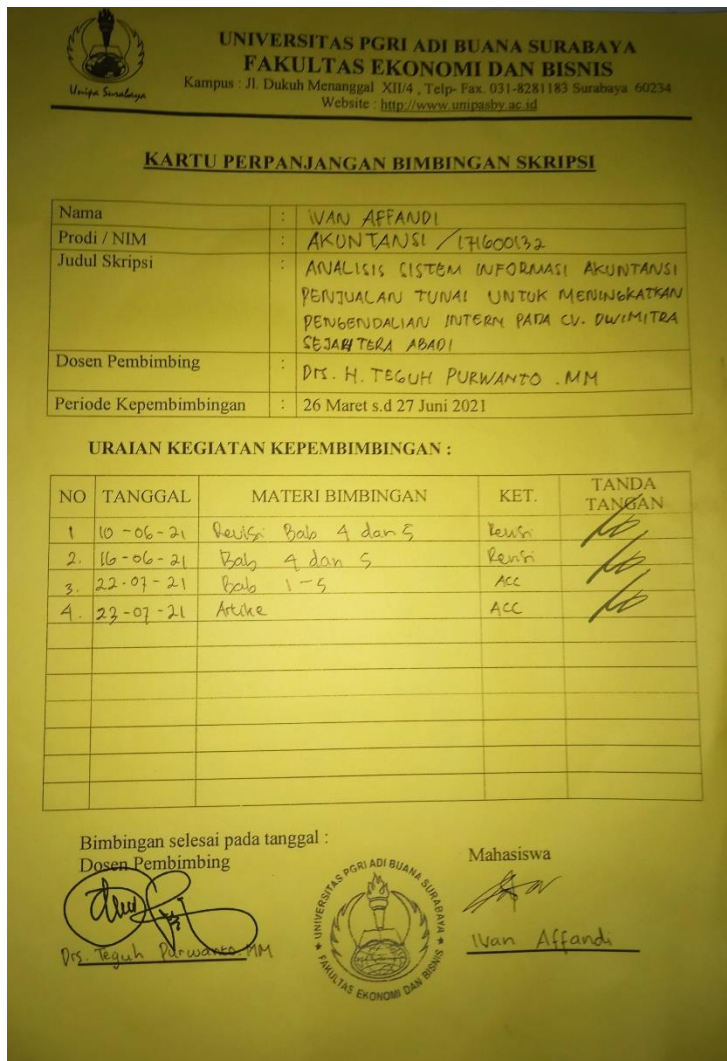 Unipa Surabaya
UNIVERSITAS PGRI ADI BUANA SURABAYA
FAKULTAS EKONOMI DAN BISNIS
Kampus : Jl. Dukuh Menanggal XII/4 , Telp- Fax. 031-8281183 Surabaya 60234
Website : http://www.unipasby.ac.id
KARTU PERPANJANGAN BIMBINGAN SKRIPSI
Nama : IVAN AFFANDI
Prodi / NIM : AKUNTANSI / 171600132
Judul Skripsi : ANALISIS SISTEM INFORMASI AKUNTANSI
PENJUALAN TUNAI UNTUK MENINGKATKAN
PENGENDALIAN INTERN PADA CV. DWIMITRA
SEJAHTERA ABADI
Dosen Pembimbing : Drs. H. TEGUH PURWANTO . MM
Periode Kepembimbingan : 26 Maret s.d 27 Juni 2021
URAIAN KEGIATAN KEPEMBIMBINGAN :
NO TANGGAL MATERI BIMBINGAN KET. TANDA TANGAN
1 10-06-21 Revisi Bab 4 dan 5 Revisi
2. 16-06-21 Bab 4 dan 5 Revisi
3. 22-07-21 Bab 1-5 ACC
4. 23-07-21 Artike ACC
Bimbingan selesai pada tanggal :
Dosen Pembimbing
Mahasiswa
Drs. Teguh Purwanto. MM
Ivan Affandi
UNIVERSITAS PGRI ADI BUANA SURABAYA
FAKULTAS EKONOMI DAN BISNIS